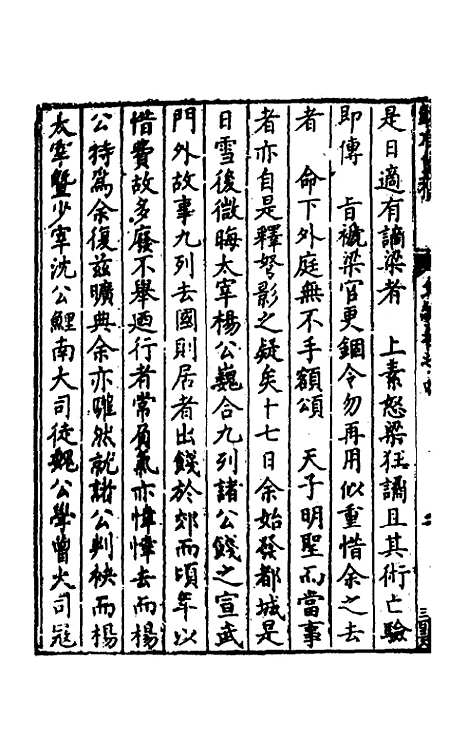 是日適有譎梁者　上素怒梁狂譎且其術亡驗
即傳　旨褫梁官更錮令勿再用似重惜余之去
者　命下外庭無不手額頌　天子明聖而當事
者亦自是釋弩影之疑矣十七日余始發都城是
日雪後微晦太宰楊公巍合九列諸公餞之宣武
門外故事九列去國則居者出餞於郊而頃年以
惜費故多廢不舉迺行者常負氣亦悻悻去而楊
公特為余復茲曠典余亦驩然就諸公判袂而楊
太宰暨少宰沈公鯉南大司徒魏公學曾大司寇